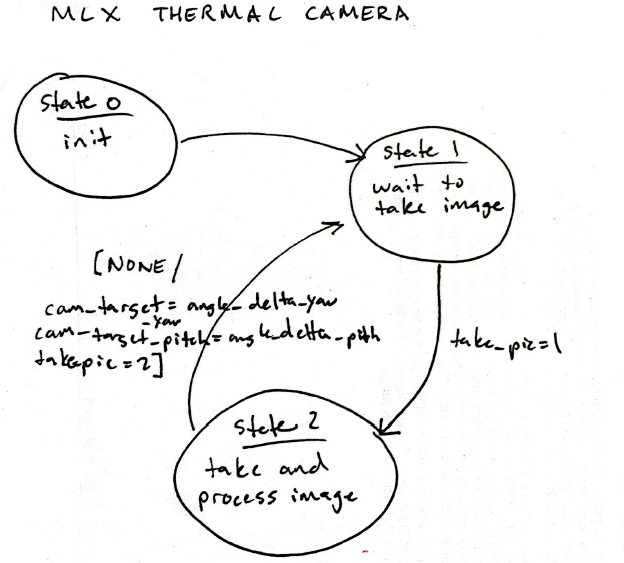 MLX THERMAL CAMERA
State 0
init
State 1
wait to
take image
[NONE/
cam_target = angle_delta_yaw
_yaw
cam_target_pitch = angle_delta_pith
takepic = 2]
take_pic=1
State 2
take and
process image